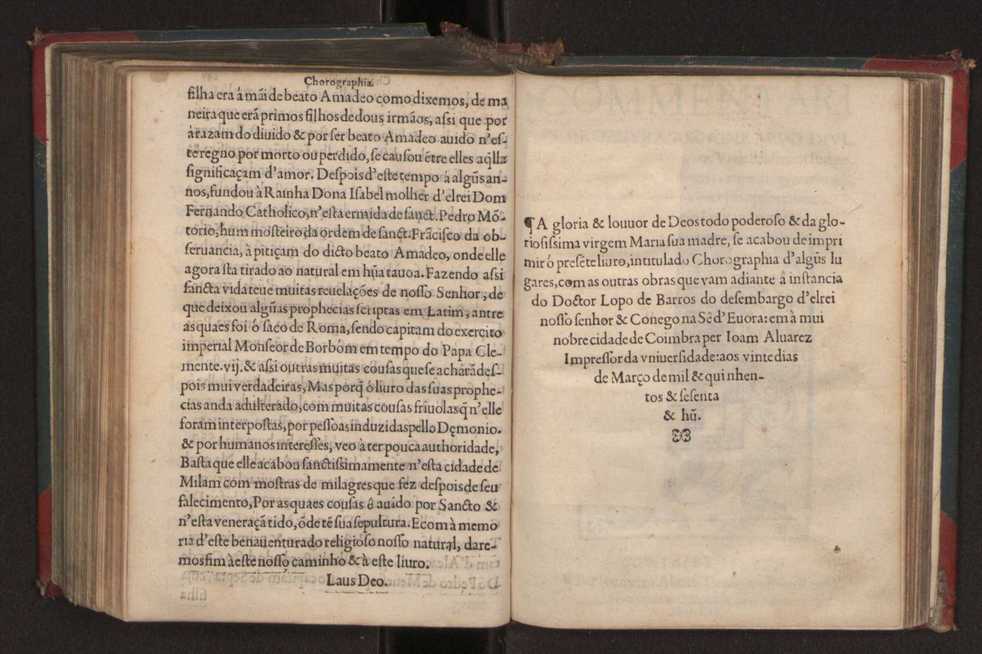 Chorographia.
filha era á mãi de beato Amadeo como dixemos, de ma
neira que erã primos filhos de dous irmãos, assi que por
à razam do diuido & por ser beato Amadeo auido n'es-
te regno por morto ou perdido, se causou ẽtre elles aq̃lla
significaçam d'amor. Despois d'este tempo á algũs an-
nos, fundou à Rainha Dona Isabel molher d'elrei Dom
Fernando Catholico, n'esta ermida de sanct. Pedro Mõ-
torio, hum mosteiro da ordem de sanct. Frãcisco da ob-
seruancia, à pitiçam do dicto beato Amadeo, onde elle
agora sta tirado ao natural em hũa tauoa. Fazendo assi
sancta vida teue muitas reuelações de nosso Senhor, de
que deixou algũas prophecias scriptas em Latim, antre
as quaes foi ó saco de Roma, sendo capitam do exercito
imperial Monseor de Borbom em tempo do Papa Cle-
mente. vij. & assi outras muitas cousas que se acharã des-
pois mui verdadeiras, Mas porq̃ ó liuro das suas prophe-
cias anda adulterado, com muitas cousas friuolas q̃ n'elle
foram interpostas, por pessoas induzidas pello Dęmonio.
& por humanos interesses, veo à ter pouca authoridade,
Basta que elle acabou sanctissimamente n'esta cidade de
Milam com mostras de milagres que fez despois de seu
falecimento, Por as quaes cousas ê auido por Sancto &
n'esta veneraçã tido, õde tẽ sua sepultura. E com à memo
ria d'este benauenturado religioso nosso natural, dare-
mos fim à este nosso caminho & à este liuro.
Laus Deo.
¶ A gloria & louuor de Deos todo poderoso & da glo-
riosissima virgem Maria sua madre, se acabou de impri
mir ó presẽte liuro, intitulado Chorographia d'algũs lu
gares, com as outras obras que vam adiante â instancia
do Doctor Lopo de Barros do desembargo d'elrei
nosso senhor & Conego na Sê d'Euora: em à mui
nobre cidade de Coimbra per Ioam Aluarez
Impressor da vniuersidade: aos vinte dias
de Março de mil & quinhen-
tos & sesenta
& hũ.